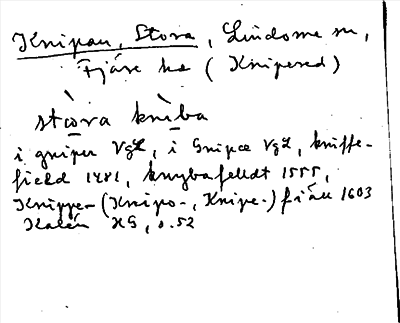 Knipan, Stora, Lindome sn,
Fjäre hd (Knipered)
stòra knìba
i gnipu VgL, i Gnipu VgL, kniffe-
field 1481, knybafelldt 1555,
Knippe- (Knipo-, Knipe-) fiäll 1603
Kalén HG, s. 52